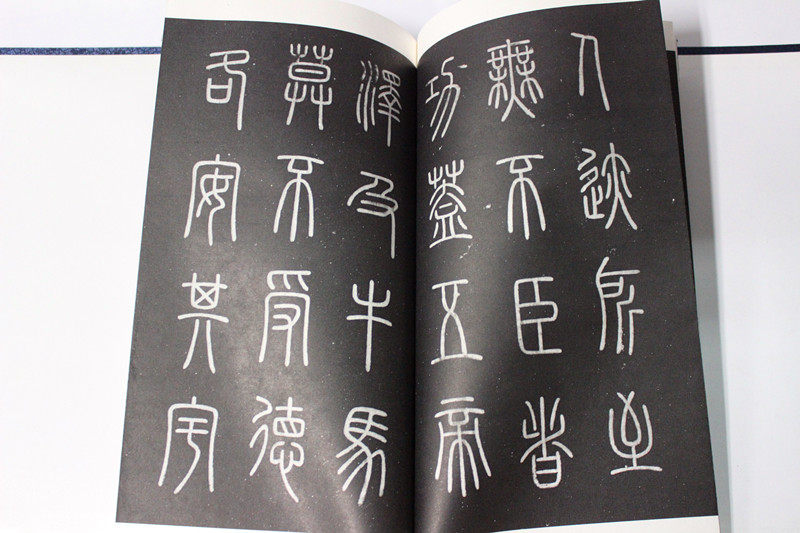 人迹所至
無不臣者
功蓋五帝
澤及牛馬
莫不受德
各安其宇